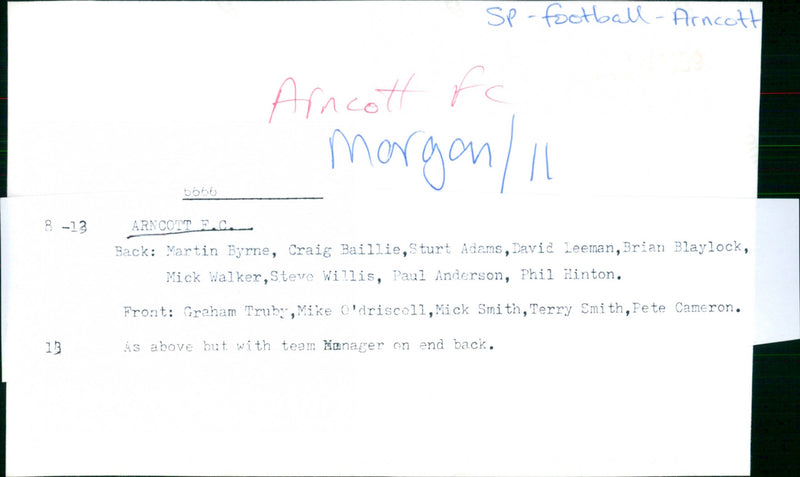 SP - football - Arncott
Arncott FC
Morgan/11
6666
8 -13 ARNCOTT F.C.
Back: Martin Byrne, Craig Baillie,Sturt Adams,David Leeman,Brian Blaylock,
Mick Walker,Steve Willis, Paul Anderson, Phil Hinton.
Front: Graham Truby,Mike O'driscoll,Mick Smith,Terry Smith,Pete Cameron.
13 As above but with team Manager on end back.